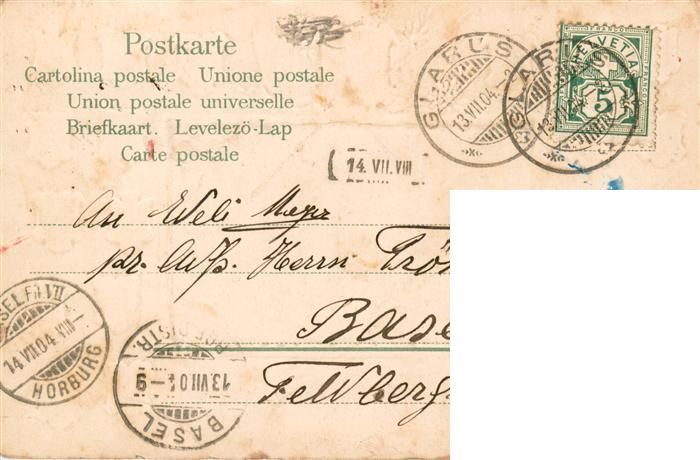 Postkarte
Cartolina postale Unione postale
Union postale universelle
Briefkaart. Levelező-Lap
Carte postale
GLARUS
13.VII.04.
GLARUS
HELVETIA
FRANCO
5
14. VII. VIII
An Weli Meyer
pr. Herrn
Base
Feldberg
14 VII 04 VIII
HORBURG
13 VII 04 - 9
BASEL